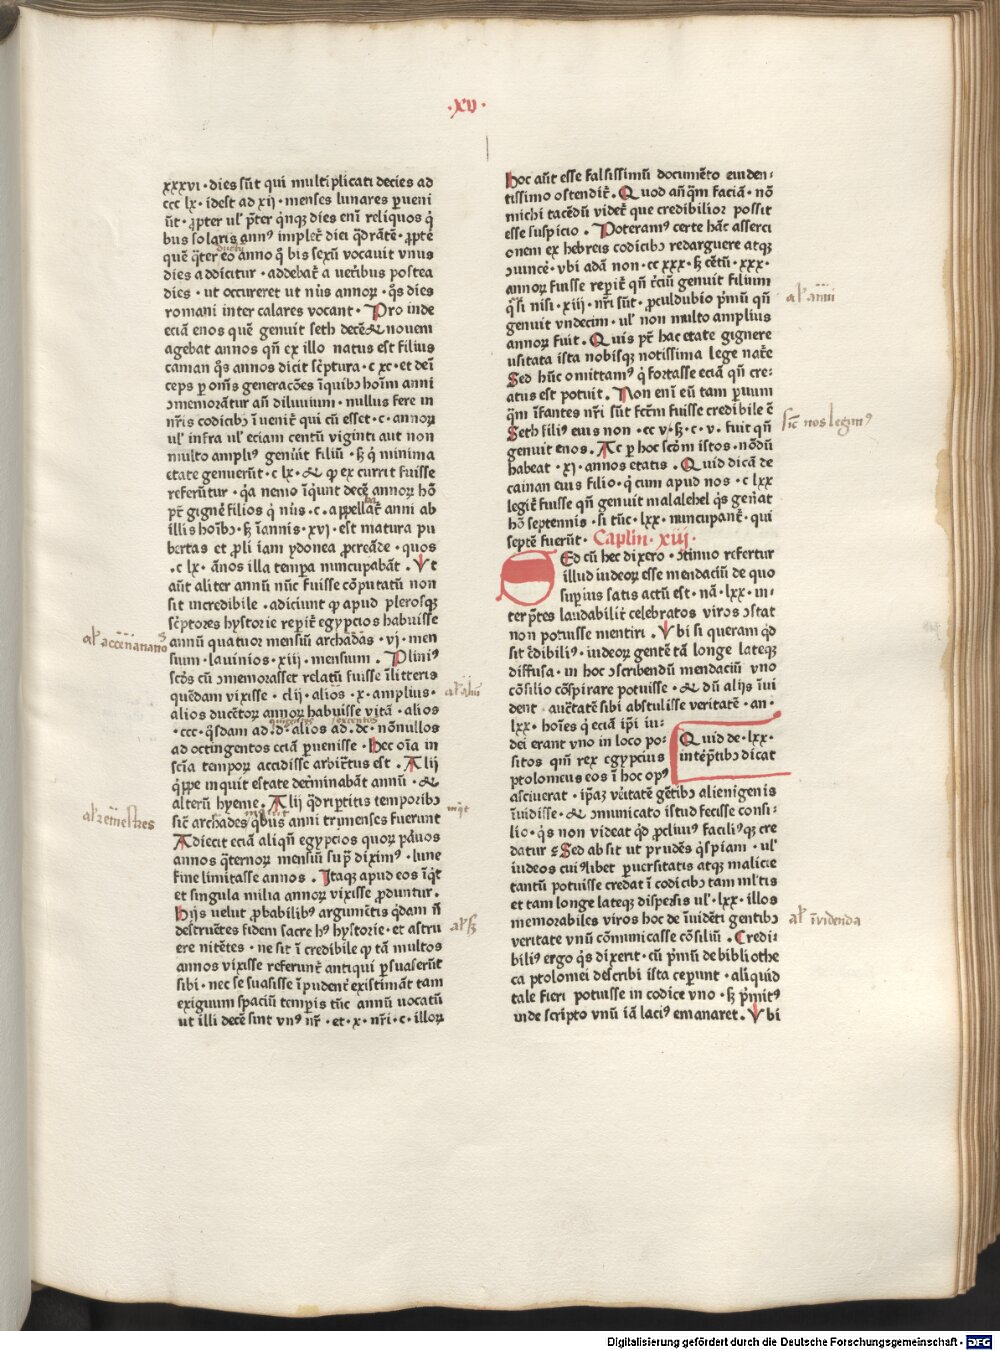 ·xv·
xxxvi · dies sūt qui multiplicati decies ad
ccc lx · idest ad xij · menses lunares ꝑueni
ūt · ꝓpter ul' p̄ter q̄nqꝫ dies enī reliquos q̇
bus solaris ann⁹ implet᷑ dici q̄drātē · ꝓpte
quē q̄ter eo anno q̇ bis sextū vocauit vnus
dies addicitur · addebat᷑ a ueribus postea
dies · ut occureret ut nūs annoꝝ · q̇s dies
romani inter calares vocant · Pro inde
eciā enos quē genuit seth decē & nouem
agebat annos qn̄ ex illo natus est filius
cainan q̇s annos dicit sc̄ptura · c xc · et deī
ceps ꝑ om̄s generacōes īquibꝯ hoīm anni
ꝯmemorātur an̄ diluuium · nullus fere in
nr̄is codicibꝯ īuenit᷑ qui cū esset · c · annoꝝ
ul' infra ul' eciam centū viginti aut non
multo ampli⁹ genuit filiū · sꝫ q̇ minima
etate genuerūt · c lx · & ꝙ ex currit fuisse
referūtur · q̇a nemo īq̇unt decē annoꝝ hō
pt̄ gigne᷑ filios q̇ nūs · c · appellat᷑ anni ab
illis hoībꝯ · sꝫ īannis · xvj · est matura pu
bertas et ꝓli iam ydonea ꝓcreāde · quos
· c lx · ānos illa tempa nuncupabāt · Vt
aūt aliter annū nūc fuisse cōputatū non
sit incredibile · adiciunt ꝙ apud plerosqꝫ
sc̄ptores hystorie repit᷑ egypcios habuisse
al' accenanano⁹
annū quatuor mensiū archadas · vj · men
sium · lauinios · xiij · mensium · Plini⁹
scd̄s cū ꝯmemorasset relatū fuisse īlitteris
quēdam vixisse · clij · alios · x · amplius ·
alios ducētoꝝ annoꝝ habuisse vitā · alios
· ccc · q̇sdam ad · d · alios ad · dc · nōnullos
ad octingentos eciā ꝑuenisse · Hec oīa in
sciā tempoꝝ accidisse arbit᷑tus est · Alij
q̇ppe inquit estate det᷑minabāt annū · &
alterū hyeme · Alij q̄dripititis temporibꝯ
al' remestres
sic᷑ archades q̇bus anni trimenses fuerunt
Adiecit eciā aliqn̄ egypcios quoꝝ pauos
annos q̄ternoꝝ mensiū supͣ diximꝰ · lune
fine limitasse annos · Itaqꝫ apud eos īq̇t
et singula milia annoꝝ vixisse ꝓduntur ·
Hijs velut ꝓbabilibꝰ argumētis q̇dam n̄
destruētes fidem sacre hꝰ hystorie · et astru
al' sꝫ
ere nitētes · ne sit ī credibile ꝙ tā multos
annos vixisse referunt᷑ antiqui ꝑsuaserūt
sibi · nec se suasisse īpudent᷑ existimāt tam
exiguum spaciū tempis tūc annū uocatū
ut illi decē sint vnꝰ nr̄ · et · x · nr̄i · c · illoꝝ
hoc aūt esse falsissimū documēto euiden-
tissimo ostendit᷑ · Quod an̄qm̄ faciā · nō
michi tacēdū videt᷑ que credibilior possit
esse suspicio · Poteramꝰ certe hāc asserci
onem ex hebreis codicibꝯ redarguere atqꝫ
ꝯuince᷑ · vbi adā non · cc xxx · sꝫ cētū · xxx ·
annoꝝ fuisse reperit᷑ qn̄ t᷑ciū genuit filium
al' annī
q̇ si nisi · xiij · nr̄i sūt · ꝓculdubio pͥmū qn̄
genuit vndecim · ul' non multo amplius
annoꝝ fuit · Quis pt̄ hac etate gignere
usitata ista nobisqꝫ notissima lege nat᷑e
Sed hūc omittamꝰ q̇ fortasse eciā qn̄ cre-
atus est potuit · Non enī eū tam ꝑuum
qm̄ īfantes nr̄i sūt fct̄m fuisse credibile ē
sic᷑ nos legimꝰ
Seth filiꝰ eius non · cc v · sꝫ · c · v · fuit qn̄
genuit enos · Ac ꝑ hoc scd̄m istos · nōdū
habeat · xj · annos etatis · Quid dicā de
cainan eius filio · q̇ cum apud nos · c lxx
legit᷑ fuisse qn̄ genuit malalehel q̇s genat
hō septennis · si tūc · lxx · nuncupant᷑ · qui
septē fuerūt · Caplm · xiij ·
Sed cū hec dixero · ꝯtinuo refertur
illud iudeoꝝ esse mendaciū de quo
supius satis actū est · nā · lxx · in-
terp̄tes laudabilit᷑ celebratos viros ꝯstat
non potuisse mentiri · Vbi si queram q̇d
sit c᷑dibiliꝰ · iudeoꝝ gentē tā longe lateqꝫ
diffusa · in hoc ꝯscribendū mendaciū vno
cōsilio cōspirare potuisse · & dū alijs īui
dent · auct᷑tatē sibi abstulisse veritatē · an ·
lxx · hoīes q̇ eciā ip̄i iu-
dei erant vno in loco po-
sitos qm̄ rex egypcius
Quid de · lxx ·
interp̄tibꝯ dicat
ptolomeus eos ī hoc opꝰ
asciuerat · ip̄aꝫ v᷑itatē gētibꝯ alienigenis
īuidisse · & ꝯmunicato istud fecisse consi-
lio · q̇s non videat q̇d ꝓcliuiꝰ faciliꝰqꝫ cre
datur · Sed absit ut prudēs q̇spiam · ul'
iudeos cuiꝰlibet ꝑuersitatis atqꝫ malicie
tantū potuisse credat ī codicibꝯ tam ml'tis
et tam longe lateqꝫ dispersis ul' · lxx · illos
al' īvidenda
memorabiles viros hoc de īuidēti gentibꝯ
veritate vnū cōmunicasse cōsiliū · Credi-
biliꝰ ergo q̇s dixerit · cū pͥmū de bibliothe
ca ptolomei describi ista ceperunt · aliquid
tale fieri potuisse in codice vno · sꝫ pͥmitꝰ
inde scripto vnū iā laciꝰ emanaret · Vbi
Digitalisierung gefördert durch die Deutsche Forschungsgemeinschaft - DFG